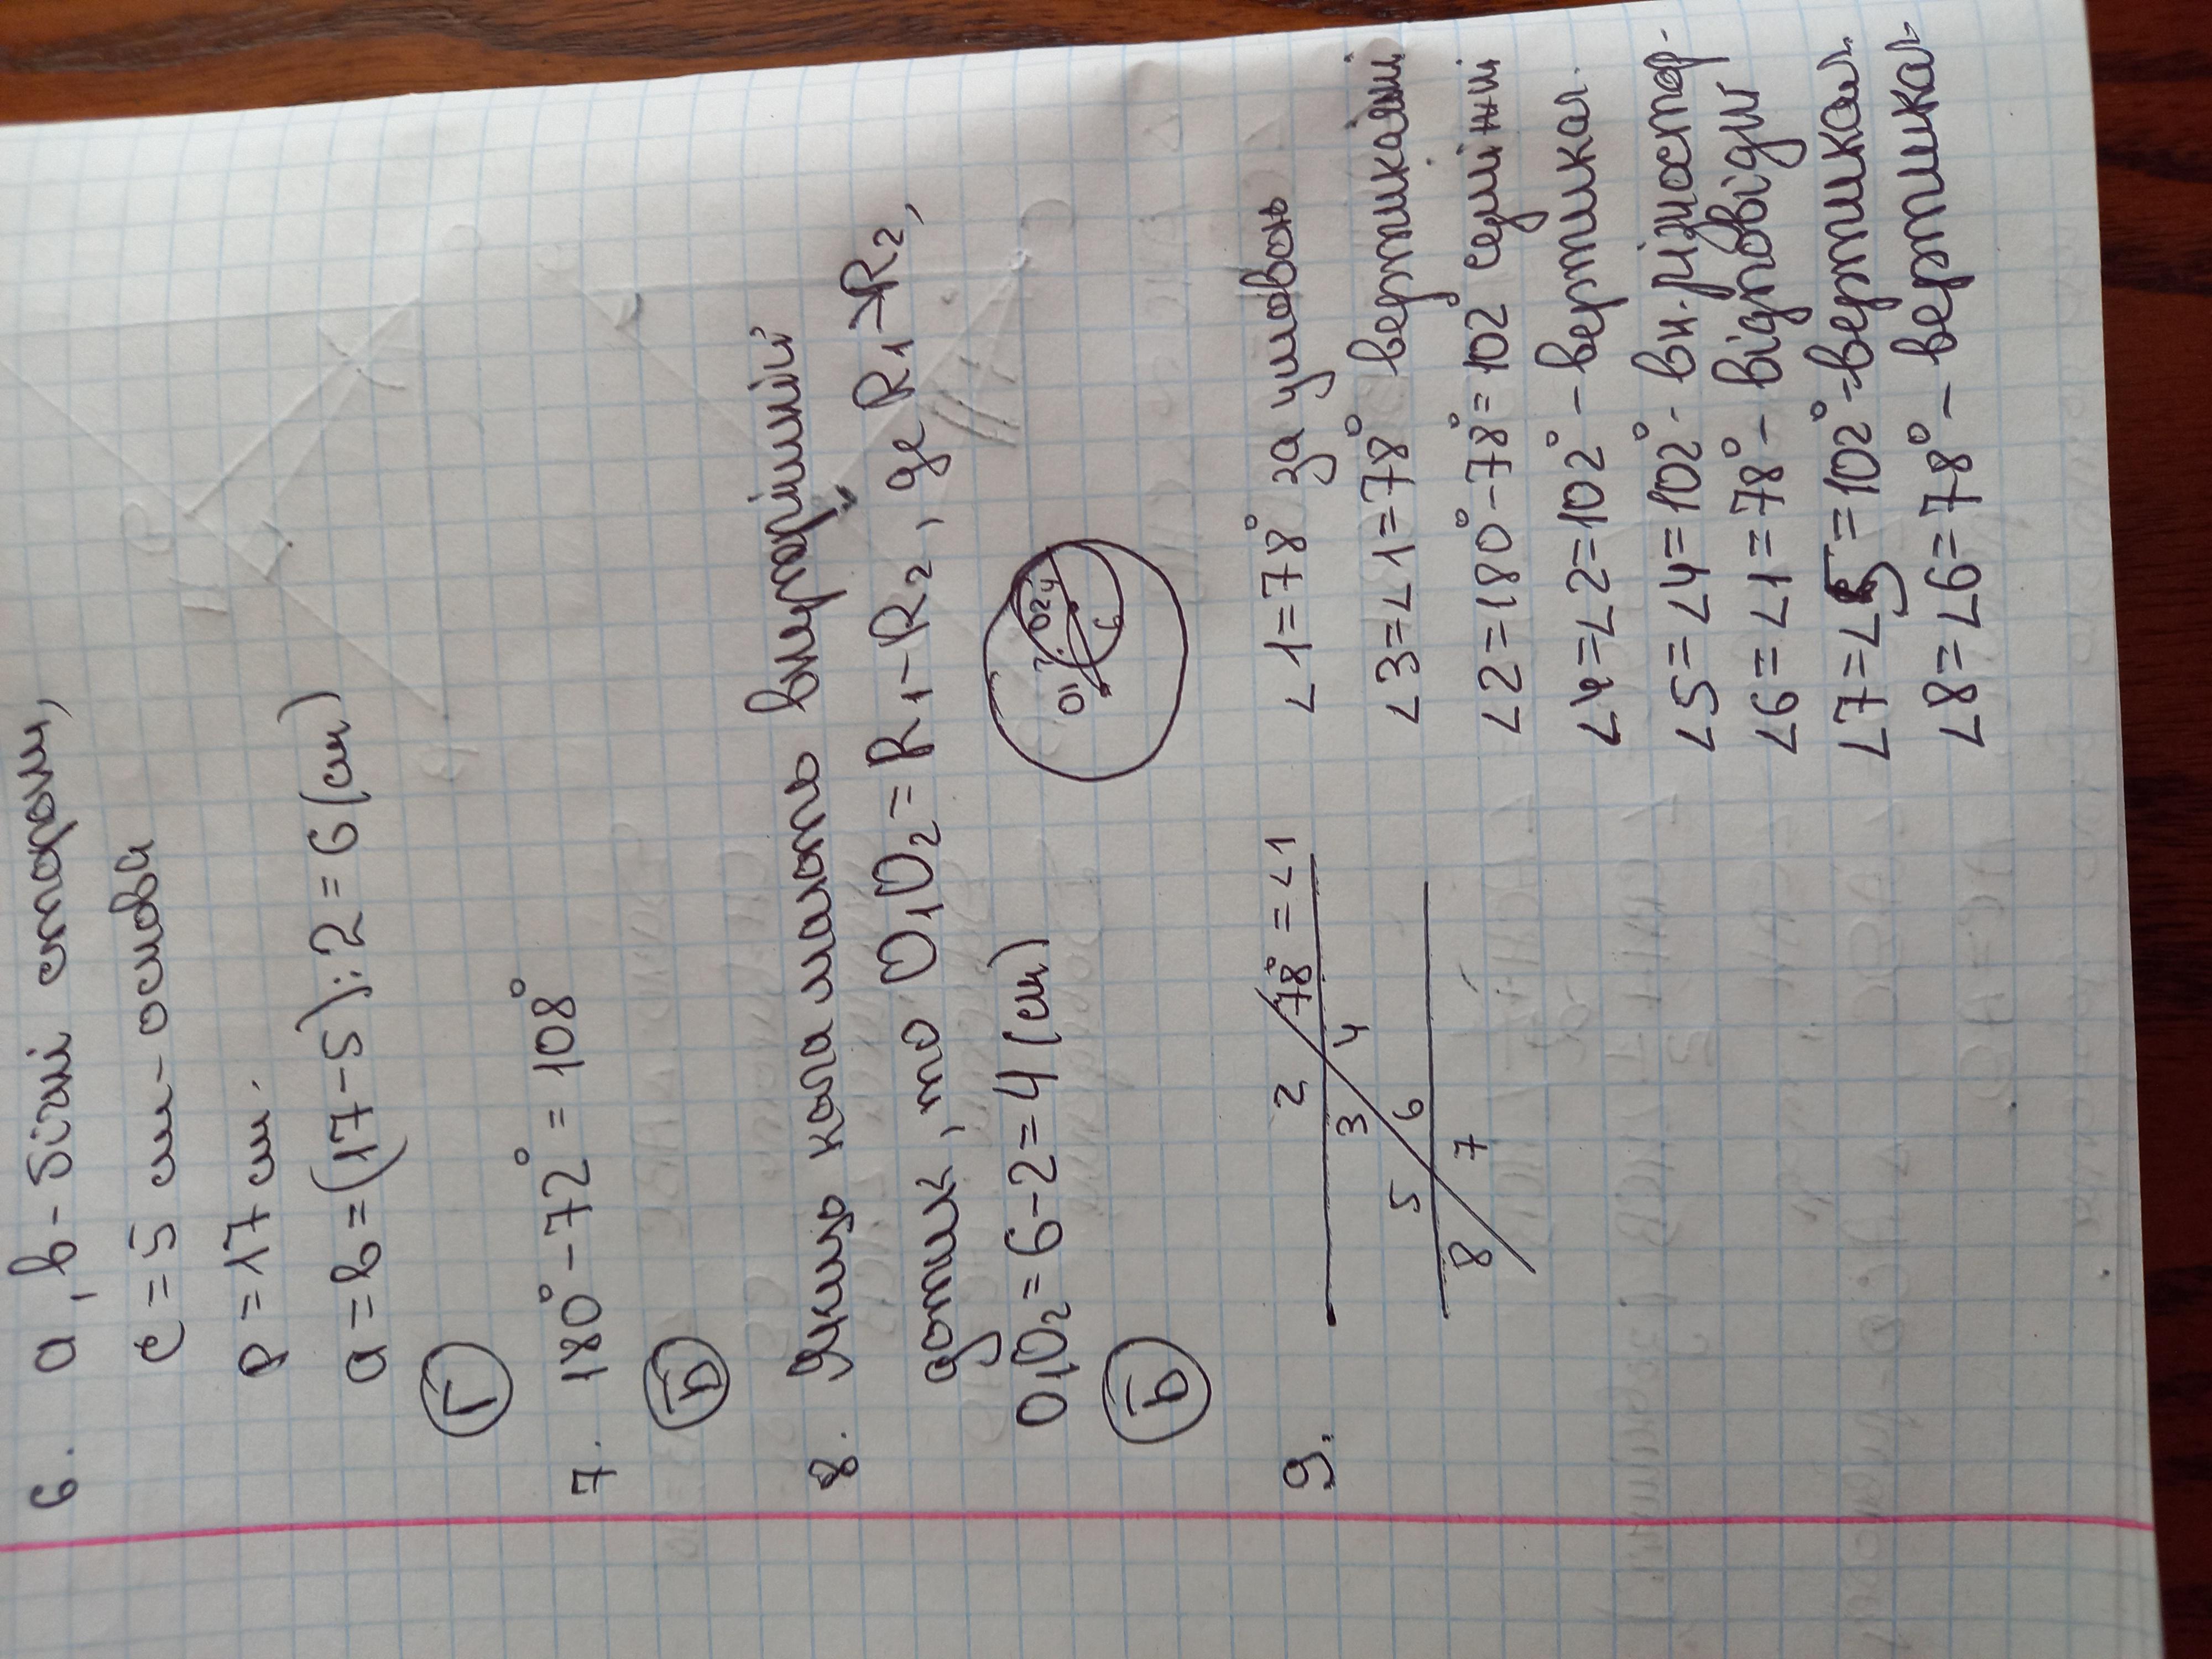 6. a, b - бічні сторони,
c = 5 см - основа
P = 17 см.
a = b = (17-5):2 = 6 (см)
Г
7. 180° - 72° = 108°
В
8. Якщо кола мають внутрішній
дотик, то O₁O₂ = R₁ - R₂, де R₁ > R₂,
O₁O₂ = 6 - 2 = 4 (см)
Б
O1 O2 4 6
9.
2 78° = ∠1
3 4
5 6
8 7
∠1 = 78° за умовою
∠3 = ∠1 = 78° вертикальні
∠2 = 180° - 78° = 102° суміжні
∠4 = ∠2 = 102° - вертикал.
∠5 = ∠4 = 102° - вн. різностор.
∠6 = ∠1 = 78° - відповідні
∠7 = ∠5 = 102° - вертикал.
∠8 = ∠6 = 78° - вертикал